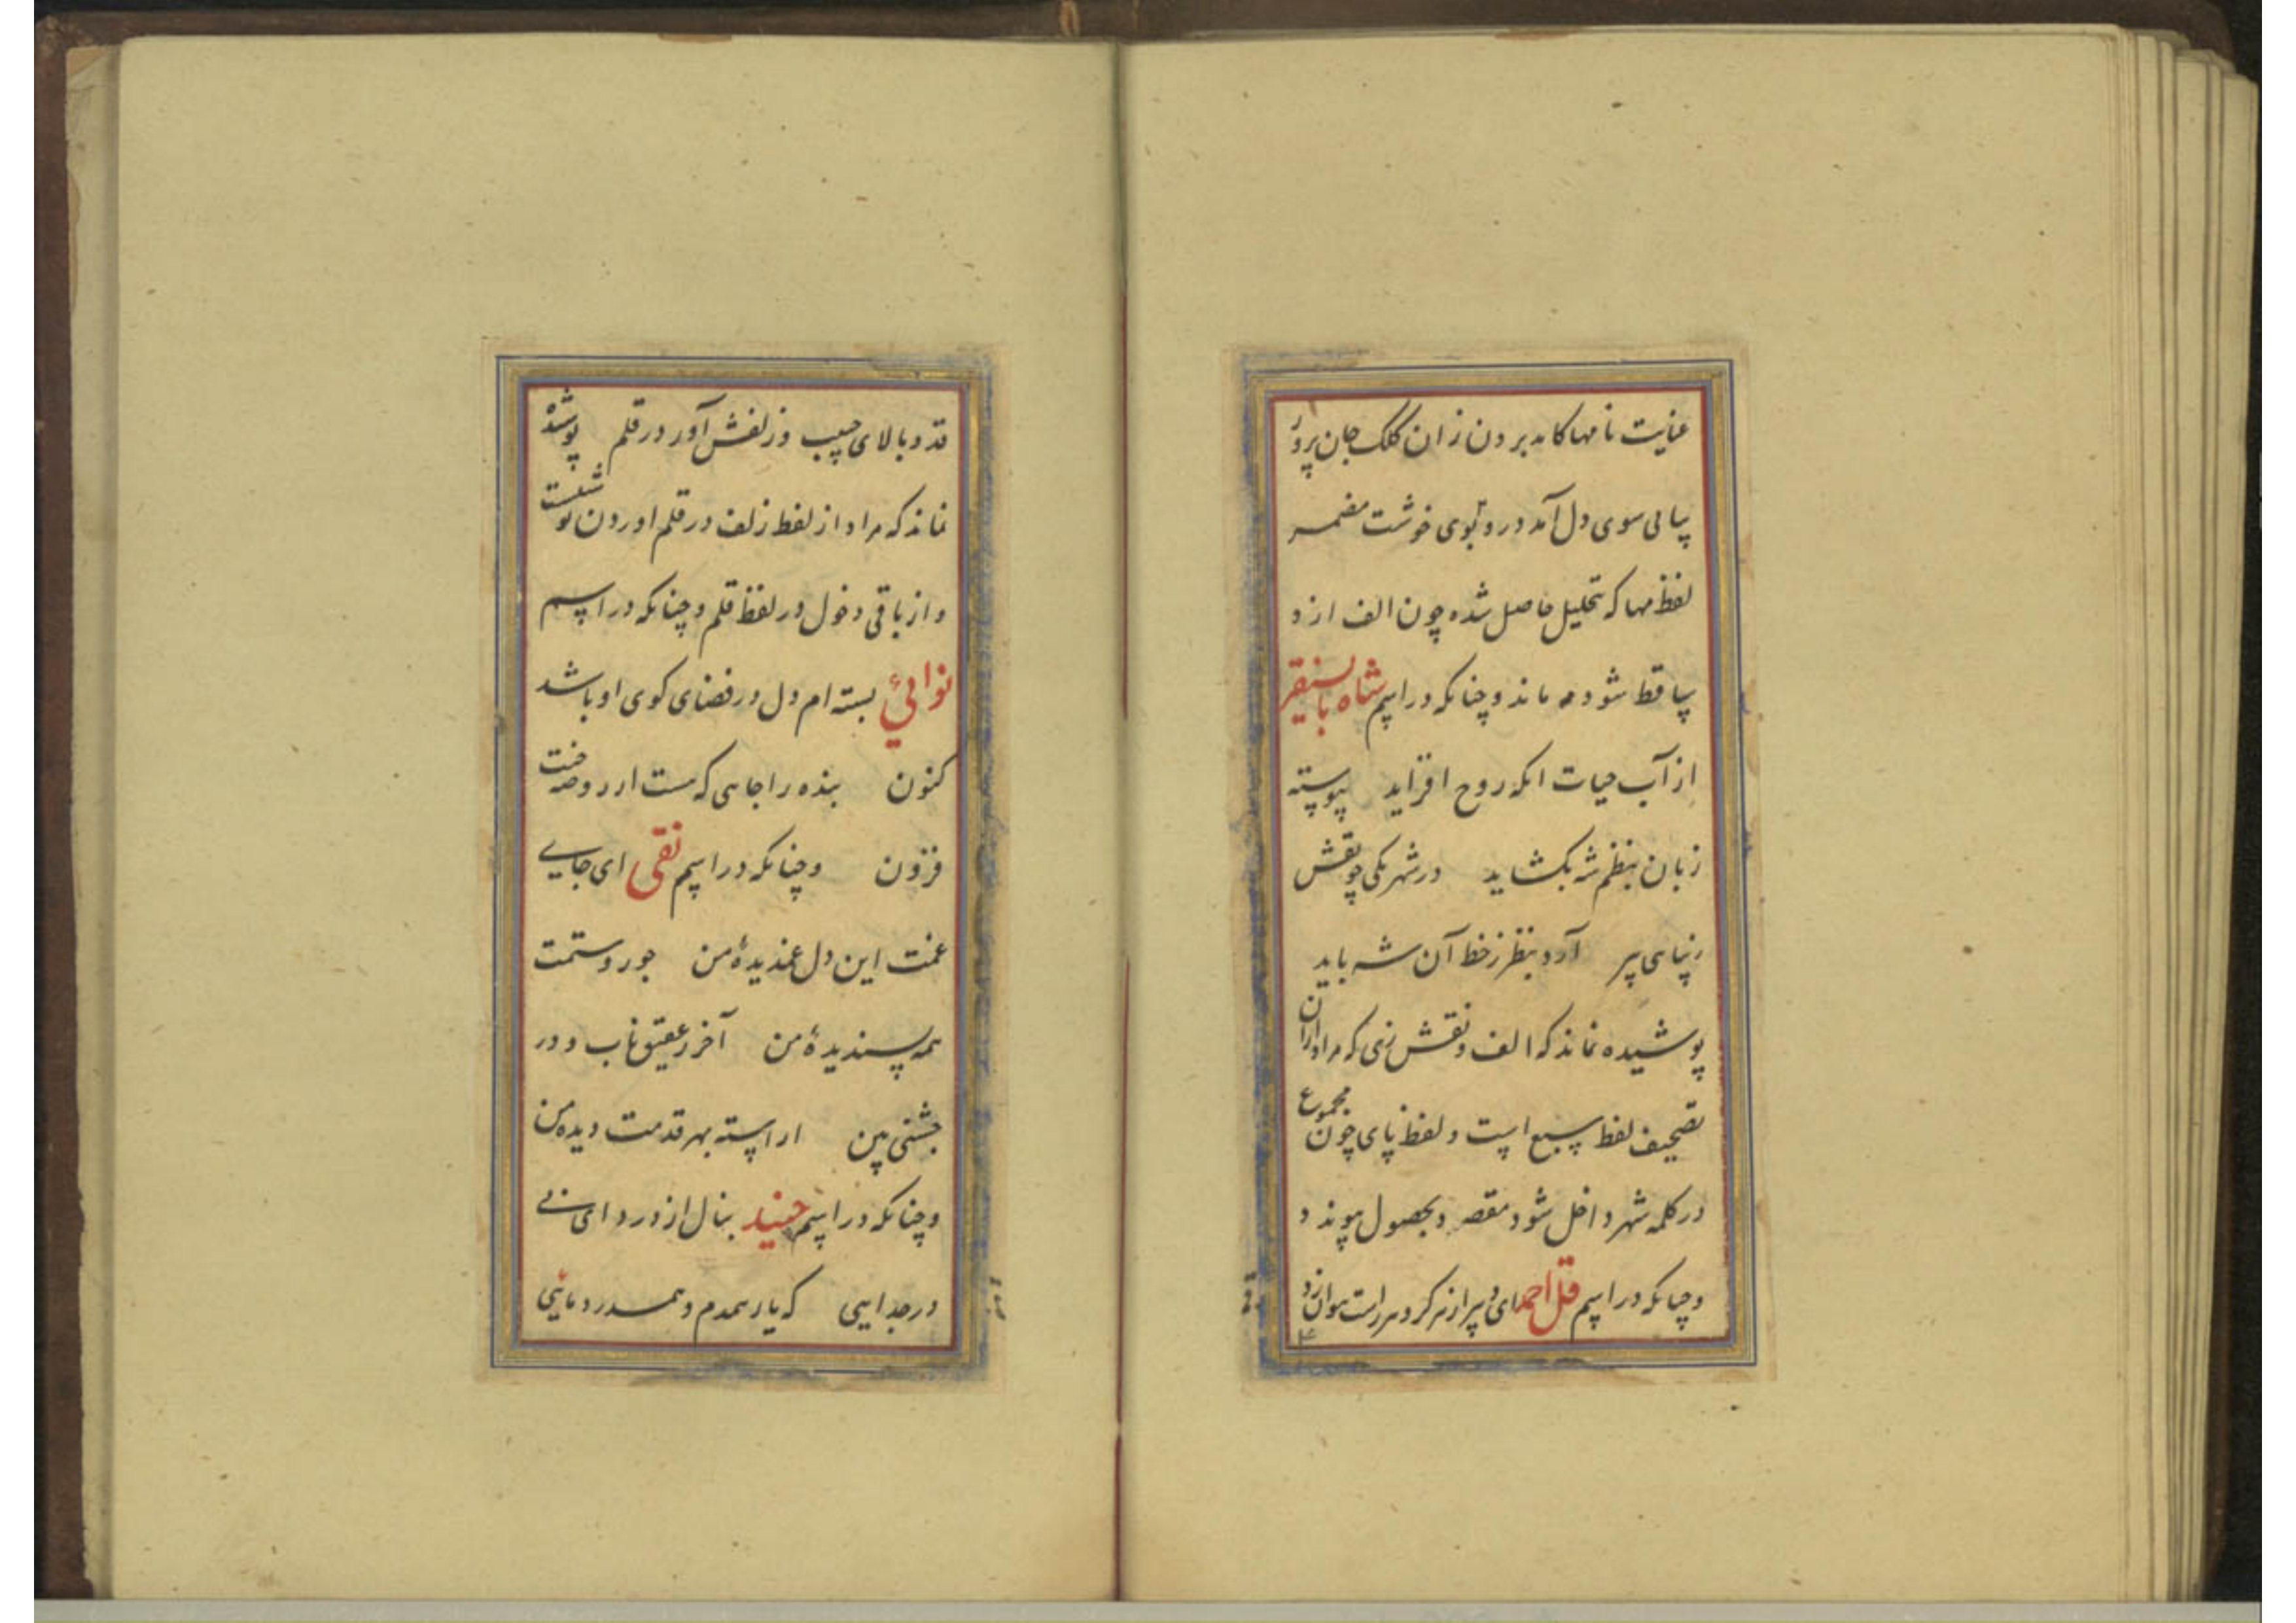 عنایت نامها کامد برون زان کلک جان پرور
پیاپی سوی دل آمد درو بوی خوشت مضمر
لفظ مها که بتحلیل حاصل شده چون الف از و
ساقط شود مه ماند و چنانکه در اسم شاه بایسنقر
از آب حیات انکه روح افزاید پیوسته
زبان بنظم شه بکشاید در شهر یکی چو نقش
آرد بنظر ز خط آن شه باید
پوشیده نماند که الف و نقش زنی که مراد ازان
تصحیف لفظ سبع است و لفظ پای چون مجموع
در کلمه شهر داخل شود مقصد بحصول پیوندد
و چنانکه در اسم قل احمد ای
قد و بالای حبیب و زلفش آور در قلم پوشیده
نماند که مراد از لفظ زلف در قلم اوردن نوشتست
و از باقی دخول در لفظ قلم و چنانکه در اسم
نوائی بسته ام دل در فضای کوی او باشد
کنون بنده را جایی که هست از روضه جنت
فزون و چنانکه در اسم نقی ای جایے
غمت این دل غمدیدهٔ من جور و ستمت
همه پسندیدهٔ من آخر ز عقیق ناب و در
جشنی بین اراسته بهر قدمت دیده من
و چنانکه در اسم جنید بنال از درد ای نے
در جدایی که یار همدم و همدرد مایی